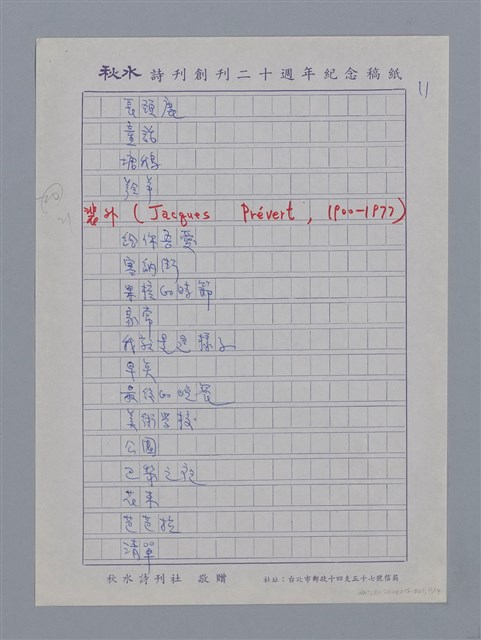 秋水 詩刊創刊二十週年紀念稿紙
11
長頸鹿
童話
塘鵝
羚羊
裴外 (Jacques Prévert, 1900-1977)
給你吾愛
塞納街
果核的時節
家常
我就是這樣子
早矣
最後的晚餐
美術學校
公園
巴黎之夜
花束
芭芭拉
清單
秋水詩刊社 敬贈
社址：台北市郵政十四支五十七號信箱